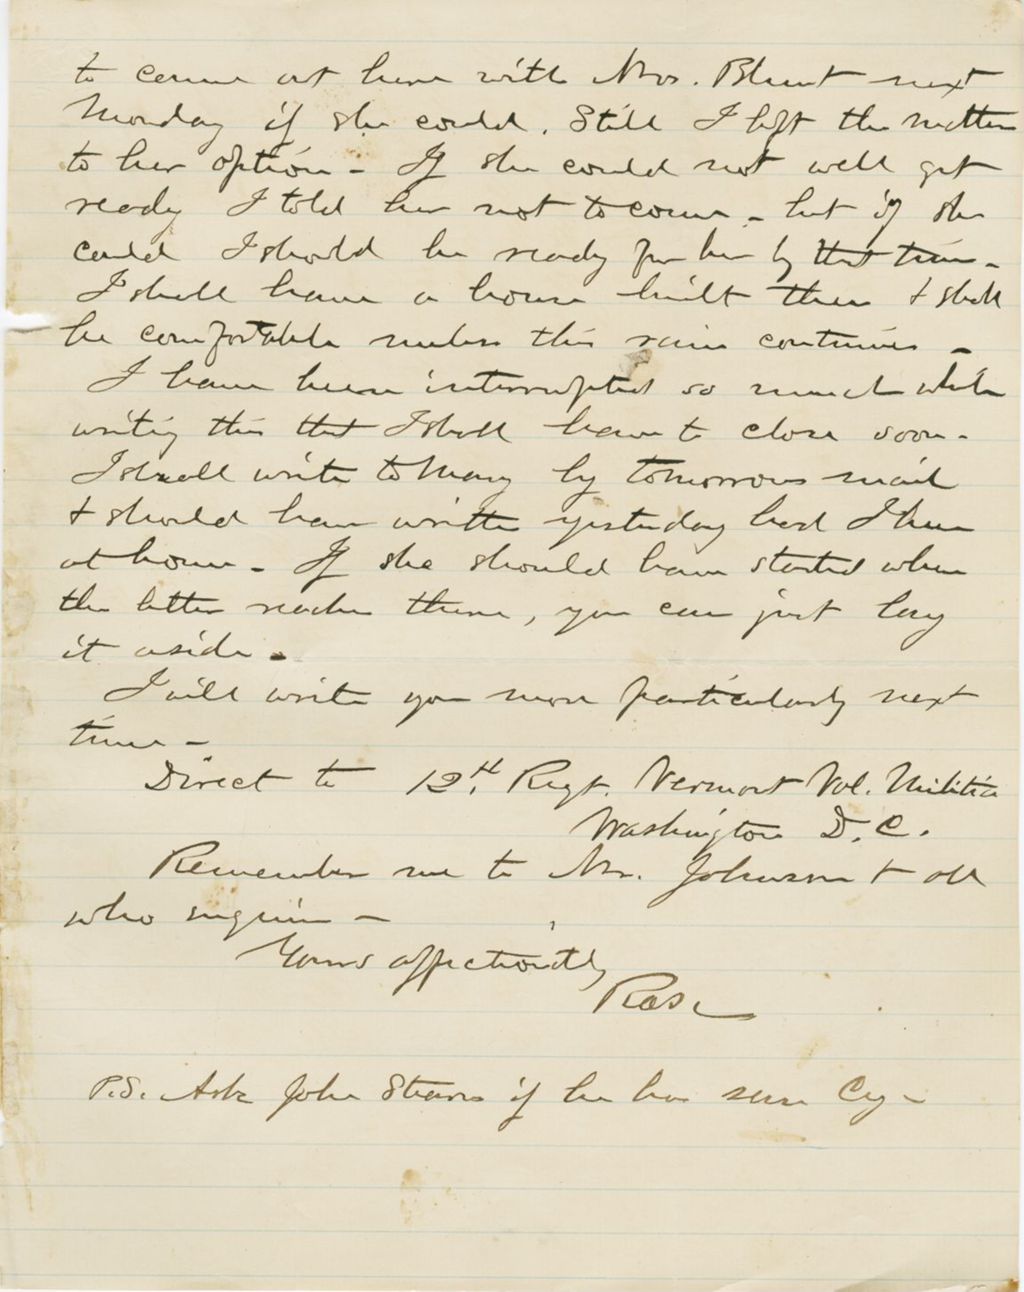 to come out here with Mrs. Blunt next
Monday if she could. Still I left the matter
to her option - If she could not well get
ready I told her not to come - but if she
could I should be ready for her by that time -
I shall have a house built then & shall
be comfortable unless this rain continues -
I have been interrupted so much while
writing this that I shall have to close soon -
I shall write to Mary by tomorrows mail
& should have written yesterday had I been
at home - If she should have started when
the letter reaches there, you can just lay
it aside -
I will write you more particularly next
time -
Direct to 12th Regt. Vermont Vol. Militia
Washington D.C.
Remember me to Mr. Johnson & all
who enquire -
Yours affectionately
Ros
P.S. Ask John Stearns if he has seen Cy -